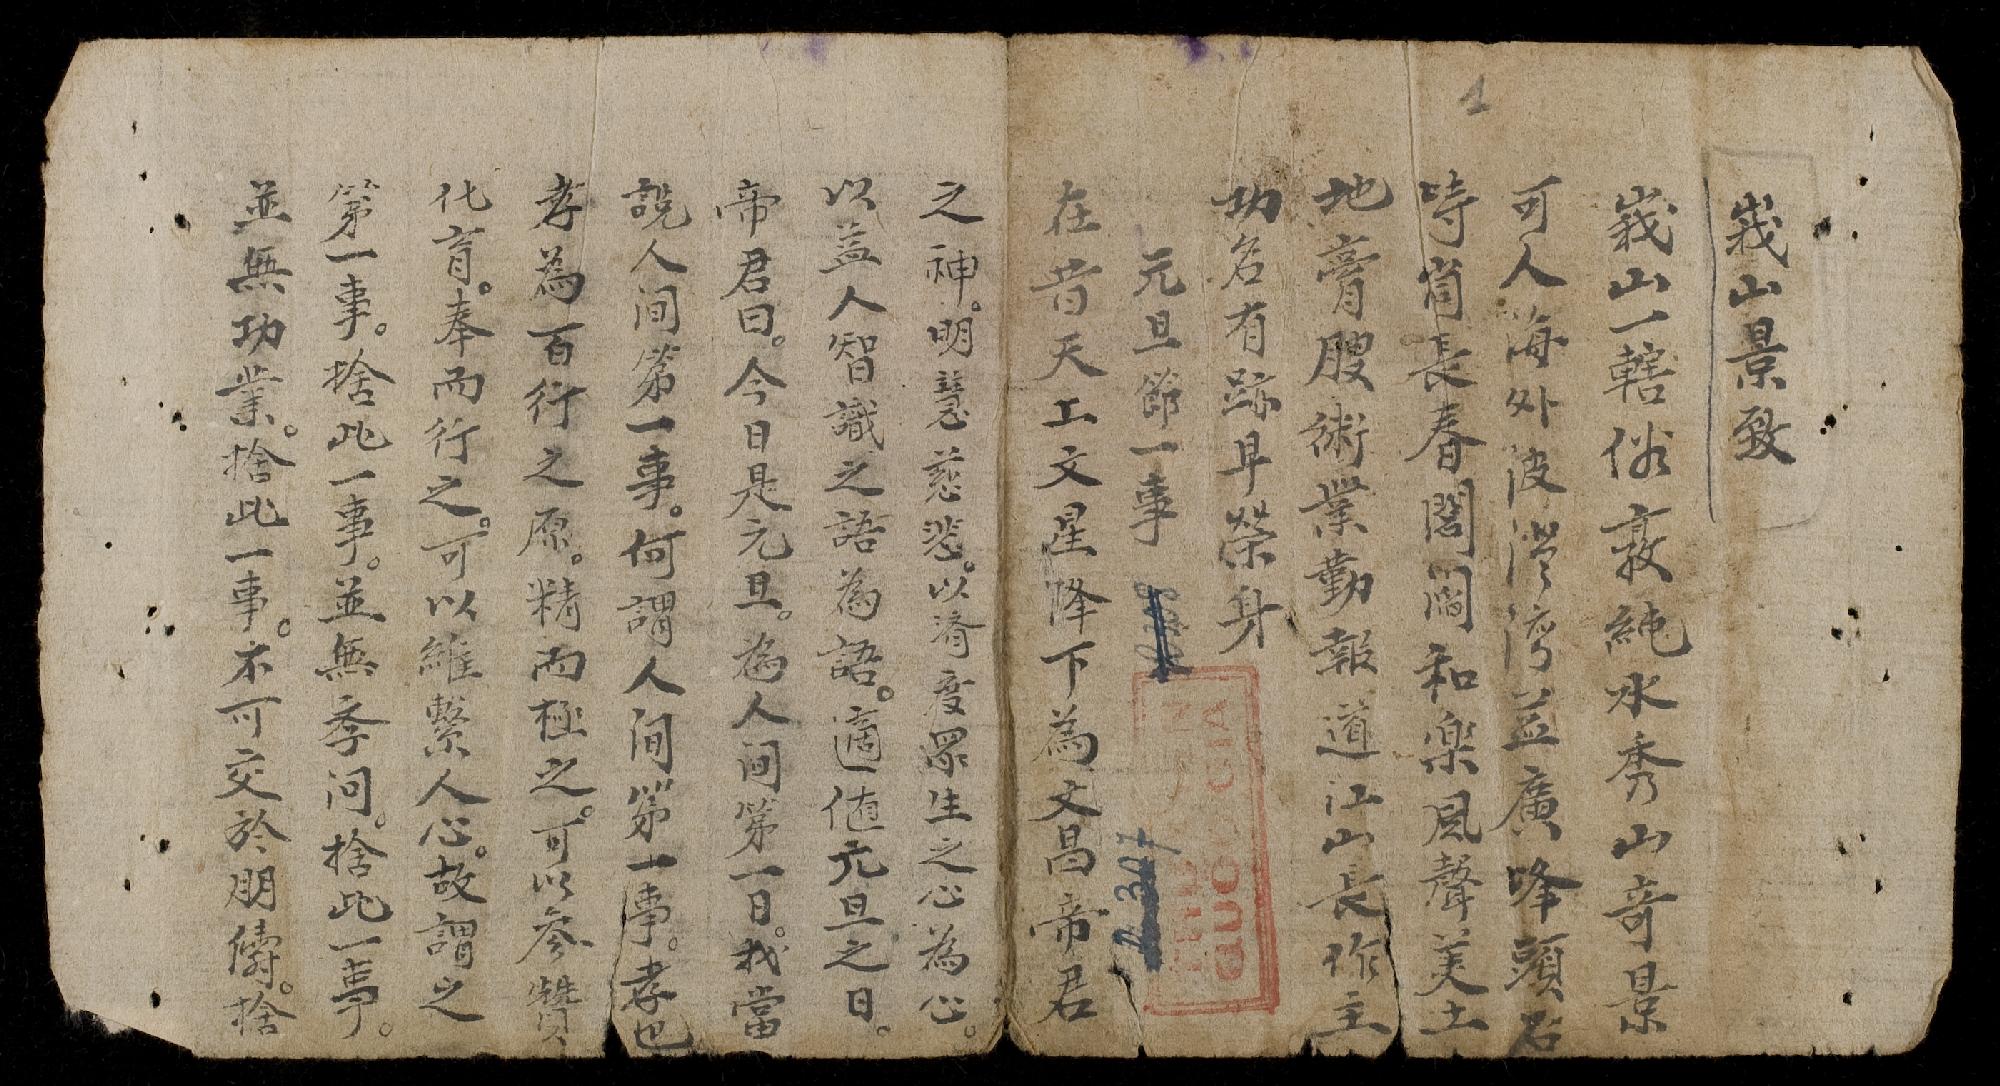 1
峩山景致
峩山一轄俗敦純水秀山奇景
可人海外波澄湾益廣峰頭君
時尚長春閣閭和樂風聲美土
地膏腴術業勤報道江山長作主
功名有跡早榮身
元旦節一事
R.327
THƯ VIỆN
QUỐC GIA
在昔天工文星降下為文昌帝君
之神。明慧慈悲。以濟度眾生之心為心。
以益人智識之語為語。適值元旦之日。
帝君曰。今日是元旦。為人间第一日。我當
說人间第一事。何謂人间第一事。孝也
孝為百行之原。精而極之。可以參贊
化育。奉而行之。可以維繫人心。故謂之
第一事。捨此一事。並無季问。捨此一事。
並無功業。捨此一事。不可交於朋儔。捨